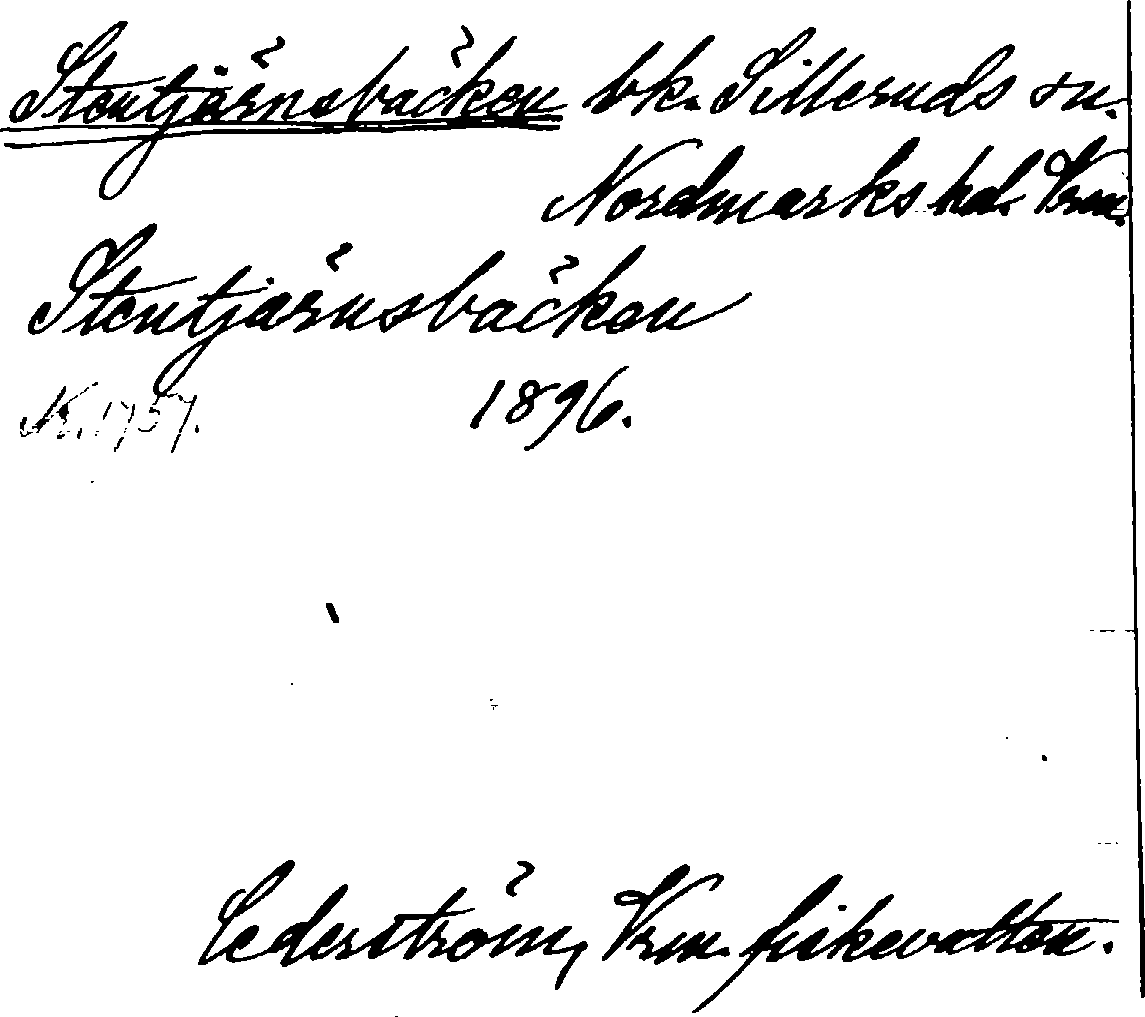 Stentjärnsbäcken bk. Silleruds sn.
Nordmarks hd. Vrm.
Stentjärnsbäcken
Nr. 1757. 1896.
Cederström, Vrm. fiskevatten.